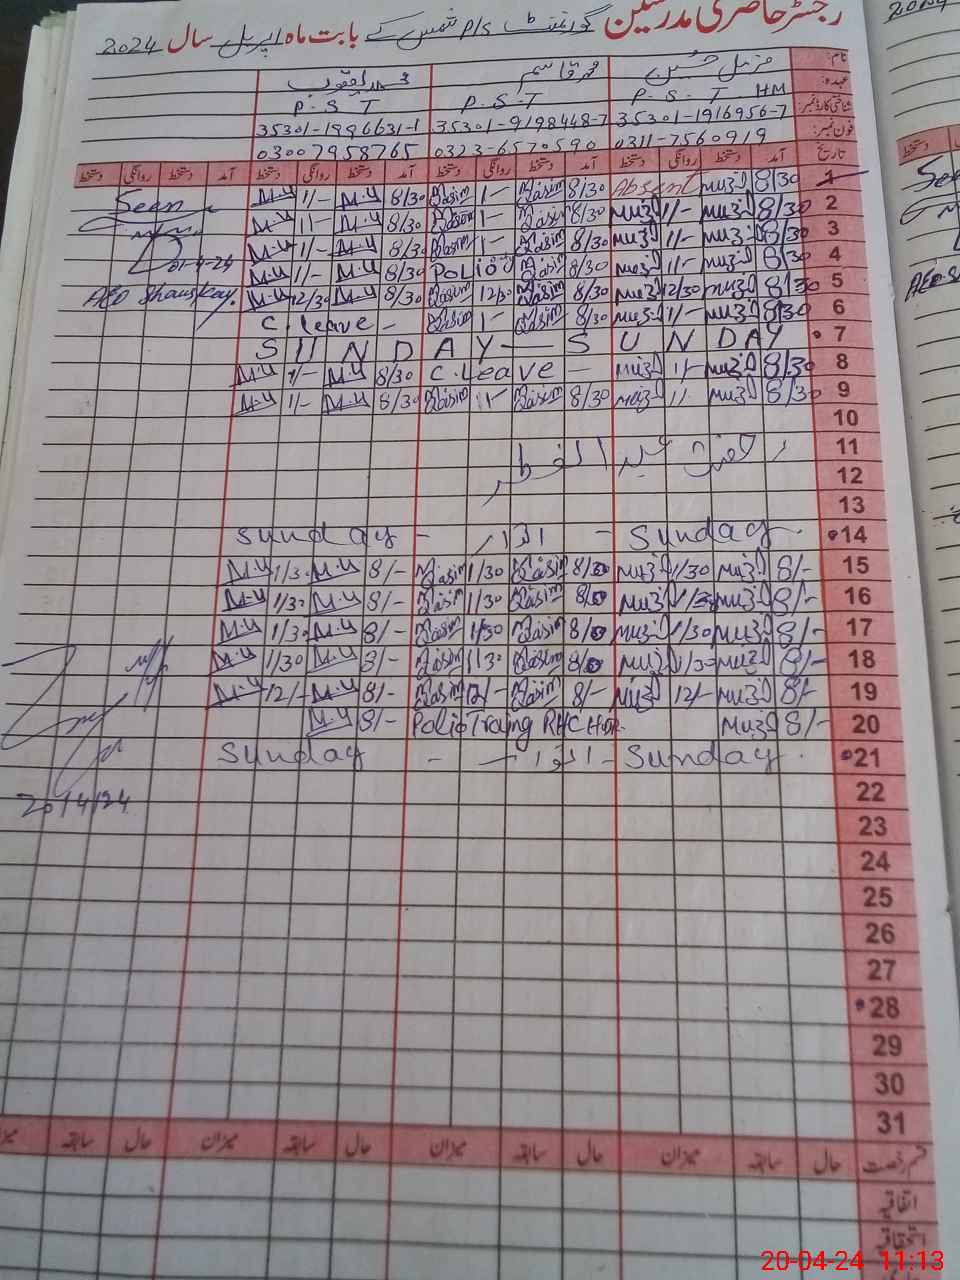 رجسٹر حاضری مدرسین گورنمنٹ P/S شمس کے بابت ماہ اپریل سال 2024
نام: مزمل حسین محمد قاسم محمد یعقوب
عہدہ: P.S.T HM P.S.T P.S.T
شناختی کارڈ نمبر: 35301-1916956-7 35301-9198448-7 35301-1996631-1
فون نمبر: 0311-7560919 0323-6570590 03007958765
تاریخ آمد دستخط روانگی دستخط آمد دستخط روانگی دستخط آمد دستخط روانگی دستخط آمد دستخط روانگی دستخط
1 8/30 Absent 8/30 Qasim 1/- Qasim 8/30 M.Y 1/- M.Y Seen
2 8/30 1/- 8/30 Qasim 1/- Qasim 8/30 M.Y 1/- M.Y
3 8/30 1/- 8/30 Qasim 1/- Qasim 8/30 M.Y 1/- M.Y 01-4-24
4 8/30 1/- 8/30 Qasim Polio 8/30 M.Y 1/- M.Y
5 8/30 12/30 8/30 Qasim 12/30 Qasim 8/30 M.Y 12/30 M.Y AEO
6 8/30 1/- 8/30 Qasim 1/- Qasim C.leave -
7 SUNDAY — SUNDAY
8 8/30 1/- C.leave - 8/30 M.Y 1/- M.Y
9 8/30 1/- 8/30 Qasim 1/- Qasim 8/30 M.Y 1/- M.Y
10
11 عید الفطر
12
13
14 Sunday - اتوار - Sunday
15 8/- 1/30 8/30 Qasim 1/30 Qasim 8/- M.Y 1/30 M.Y
16 8/- 1/30 8/0 Qasim 1/30 Qasim 8/- M.Y 1/30 M.Y
17 8/- 1/30 8/0 Qasim 1/30 Qasim 8/- M.Y 1/30 M.Y
18 8/- 1/30 8/0 Qasim 1/30 Qasim 8/- M.Y 1/30 M.Y
19 8/- 12/- 8/- Qasim 12/- Qasim 8/- M.Y 12/- M.Y
20 8/- Polio Traing RHC 8/- M.Y
21 Sunday - اتوار - Sunday
22 20/4/24
23
24
25
26
27
28
29
30
31
قسم رخصت حال سابقہ میزان حال سابقہ میزان حال سابقہ میزان حال سابقہ میزان
اتفاقیہ
استحقاقیہ
20-04-24 11:13